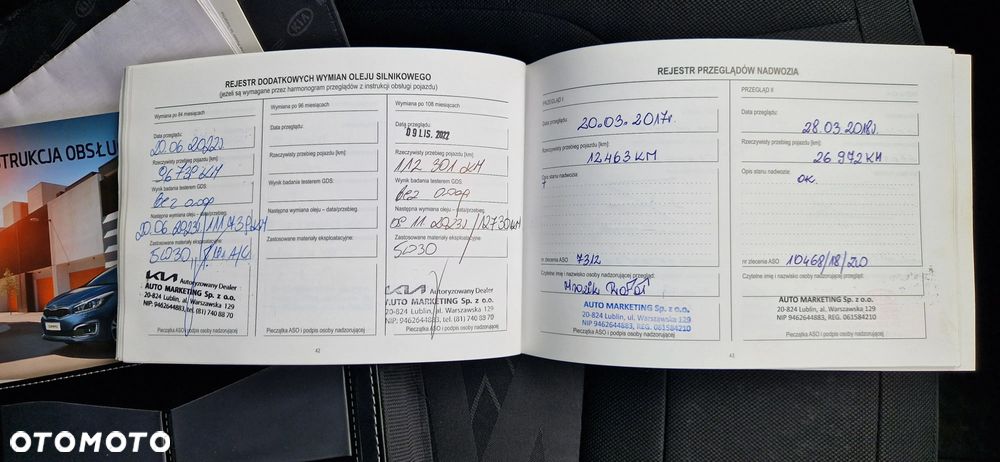 KIA
STRUKCJA OBSŁU
REJESTR DODATKOWYCH WYMIAN OLEJU SILNIKOWEGO
(jeżeli są wymagane przez harmonogram przeglądów z instrukcji obsługi pojazdu)
Wymiana po 84 miesiącach
Data przeglądu:
20.06.2022
Rzeczywisty przebieg pojazdu [km]:
96739 KM
Wynik badania testerem GDS:
Bez uwag
Następna wymiana oleju – data/przebieg.
20.06.2023 / 111739 KM
Zastosowane materiały eksploatacyjne:
5W30
KIA Autoryzowany Dealer
AUTO MARKETING Sp. z o.o.
20-824 Lublin, al. Warszawska 129
NIP: 9462644883, tel. (81) 740 88 70
Pieczątka ASO i podpis osoby nadzorującej
Wymiana po 96 miesiącach
Data przeglądu:
Rzeczywisty przebieg pojazdu [km]:
Wynik badania testerem GDS:
Następna wymiana oleju – data/przebieg:
Zastosowane materiały eksploatacyjne:
Pieczątka ASO i podpis osoby nadzorującej
Wymiana po 108 miesiącach
Data przeglądu:
09 LIS. 2022
Rzeczywisty przebieg pojazdu [km]:
112 301 KM
Wynik badania testerem GDS:
Bez uwag
Następna wymiana oleju – data/przebieg.
Zastosowane materiały eksploatacyjne:
5W30
Autoryzowany Dealer
AUTO MARKETING Sp. z o.o.
20-824 Lublin, al. Warszawska 129
NIP: 9462644883, tel. (81) 740 88 70
Pieczątka ASO i podpis osoby nadzorującej
42
REJESTR PRZEGLĄDÓW NADWOZIA
PRZEGLĄD I
Data przeglądu:
20.03.2017r.
Rzeczywisty przebieg pojazdu [km]:
12463 KM
Opis stanu nadwozia:
nr zlecenia ASO
7312
Czytelne imię i nazwisko osoby nadzorującej przegląd:
AUTO MARKETING Sp. z o.o.
20-824 Lublin, ul. Warszawska 129
NIP 9462644883, REG. 061584210
Pieczątka ASO i podpis osoby nadzorującej
PRZEGLĄD II
Data przeglądu:
28.03.2018r.
Rzeczywisty przebieg pojazdu [km]:
26 972 KM
Opis stanu nadwozia:
OK.
nr zlecenia ASO
10468/18/20
Czytelne imię i nazwisko osoby nadzorującej przegląd:
AUTO MARKETING Sp. z o.o.
20-824 Lublin, ul. Warszawska 129
NIP 9462644883, REG. 061584210
Pieczątka ASO i podpis osoby nadzorującej
43
OTOMOTO